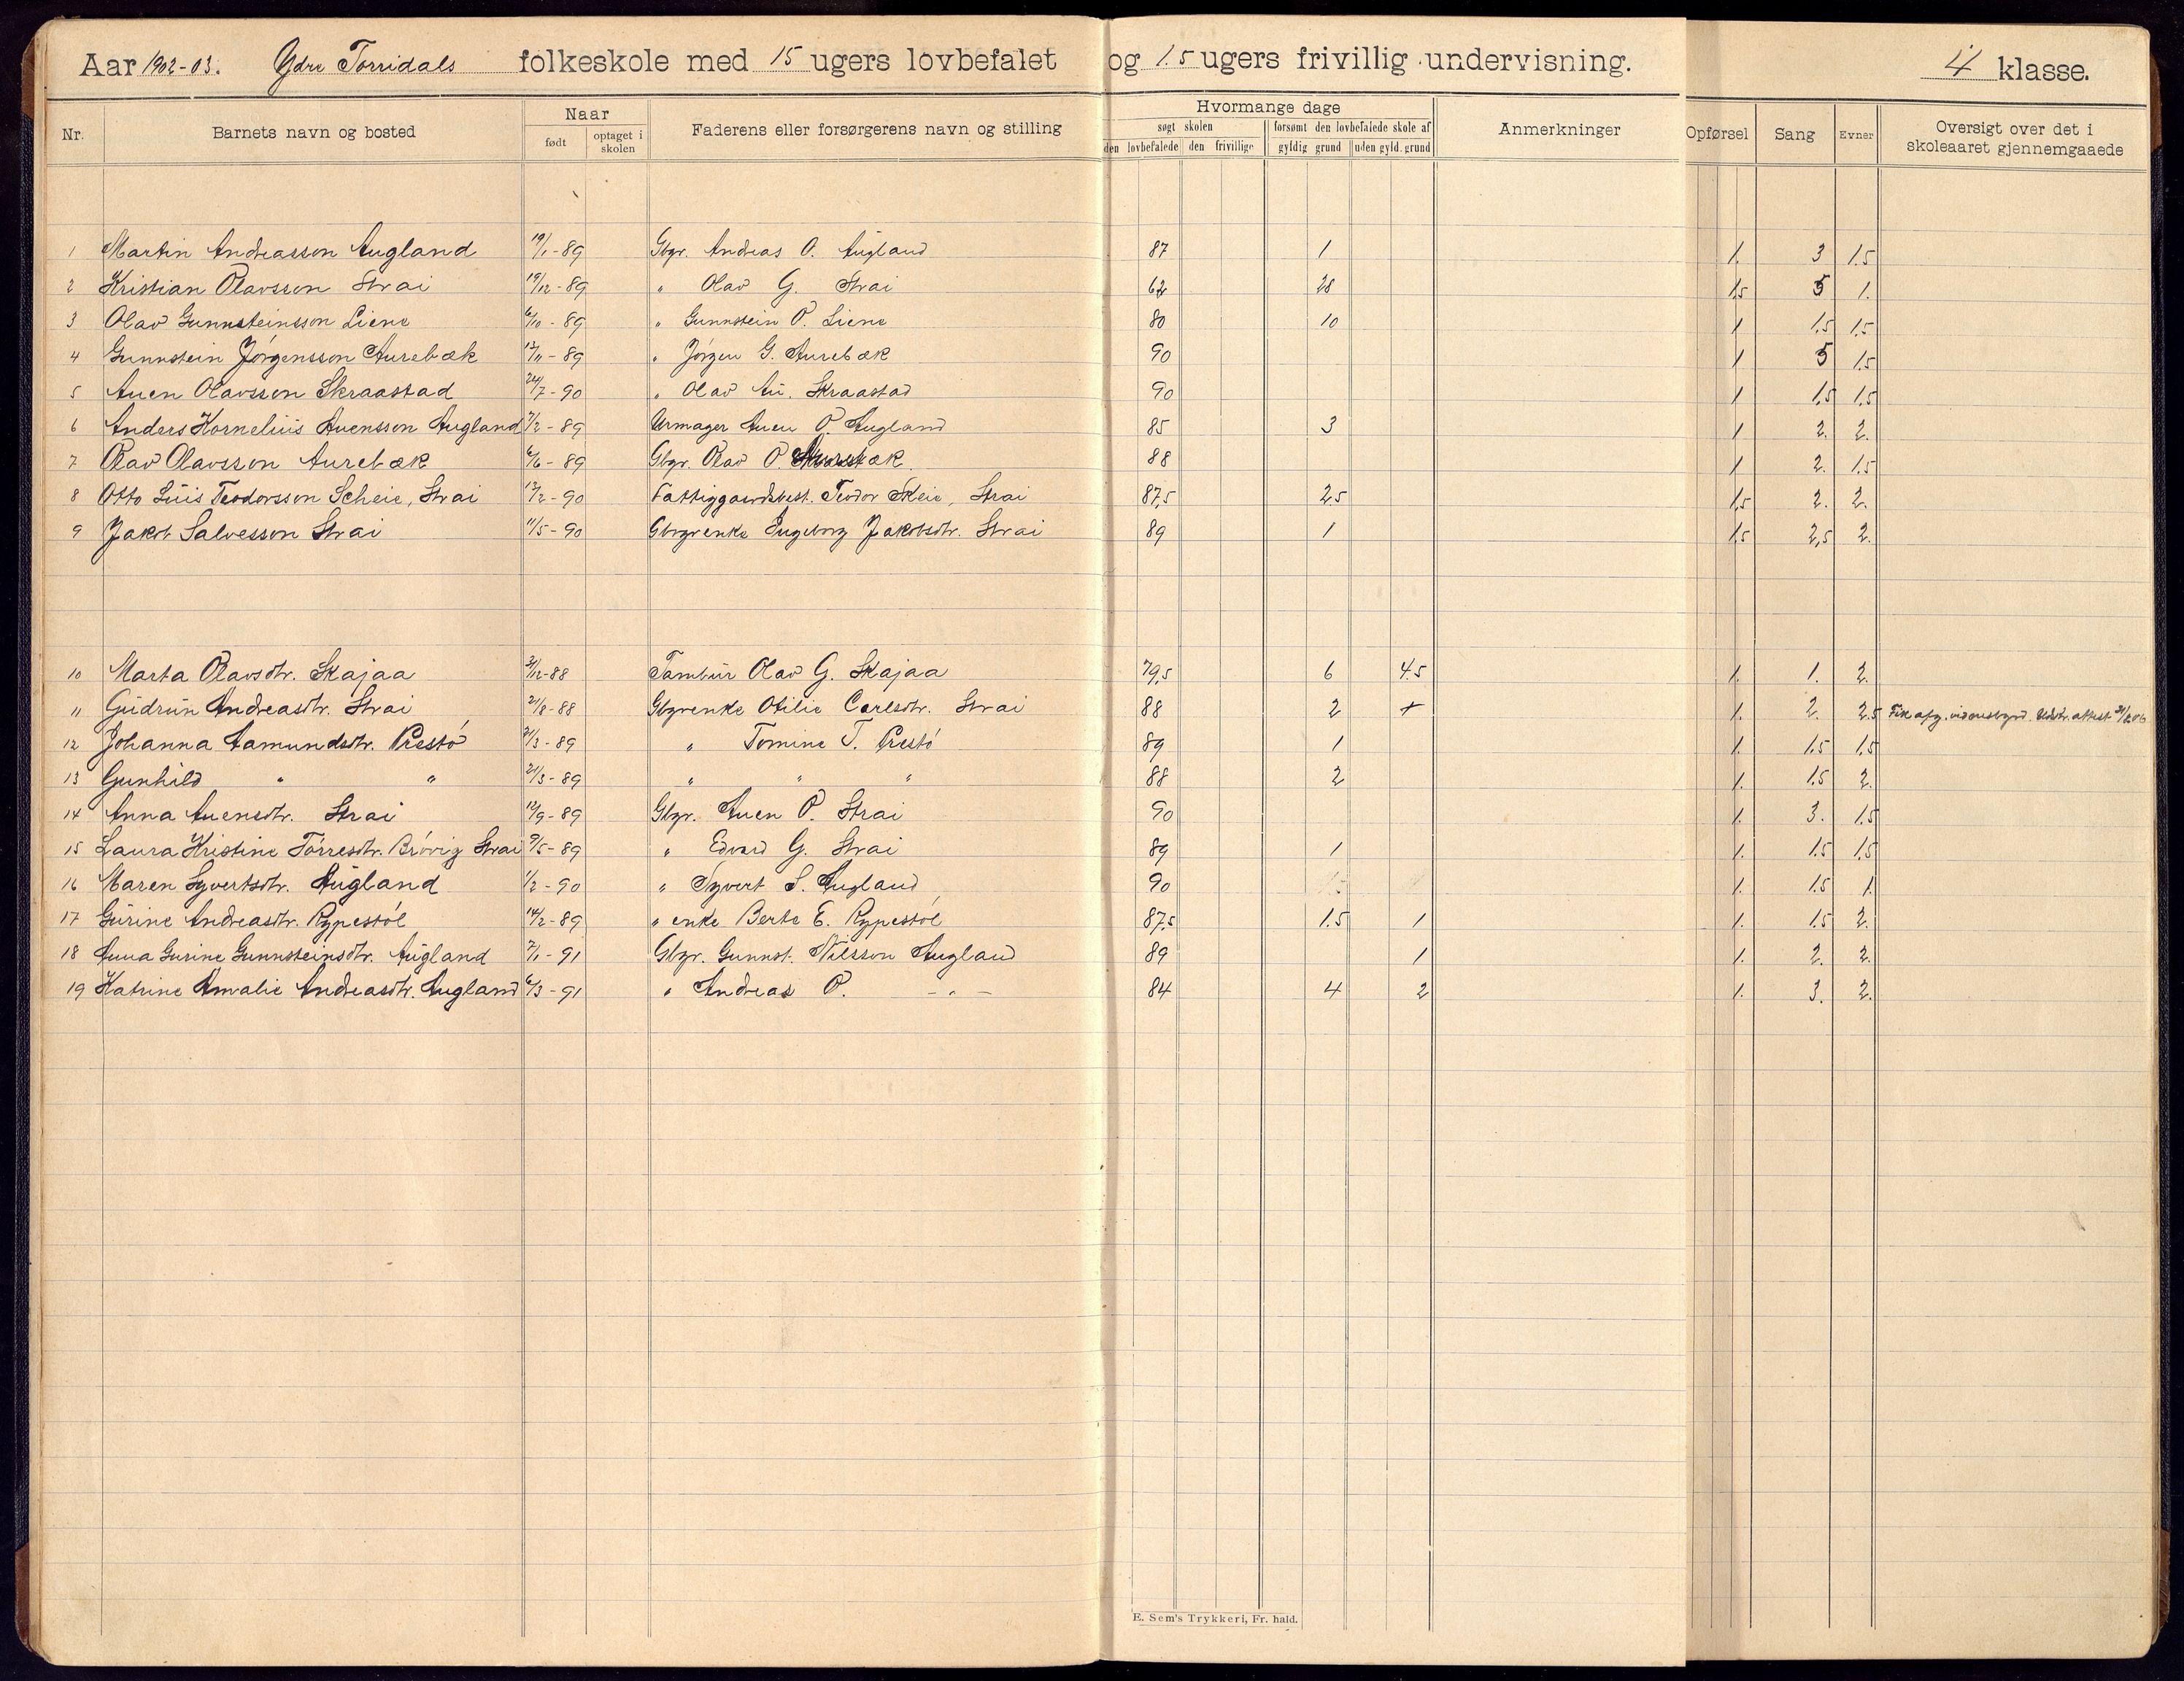 Aar 1902-03. Ydre Torridals folkeskole med 15 ugers lovbefalet og 1.5 ugers frivillig undervisning. 4 klasse.
Nr. Barnets navn og bosted Naar født optaget i skolen Faderens eller forsørgerens navn og stilling Hvormange dage søgt skolen den lovbefalede den frivillige forsømt den lovbefalede skole af gyldig grund uden gyld. grund Anmerkninger Opførsel Sang Evner Oversigt over det i skoleaaret gjennemgaaede
1 Martin Andreasson Augland 19/1-89 Gbgr. Andreas O. Augland 87 1 1. 3 1.5
2 Kristian Olavsson Strai 19/12-89 " Olav G. Strai 62 28 1,5 5 1.
3 Olav Gunnsteinsson Liene 6/10-89 " Gunnstein O. Liene 80 10 1 1,5 1.5
4 Gunnstein Jörgensson Aurebæk 12/11-89 " Jörgen G. Aurebæk 90 1 5 1.5
5 Auen Olavsson Skraastad 24/7-90 " Olav Au. Skraastad 90 1 1,5 1,5
6 Anders Kornelius Auensson Augland 7/2-89 Urmager Auen O. Augland 85 3 1 2. 2.
7 Olav Olavsson Aurebæk 6/6-89 Gbgr. Olav O. Aurebæk. 88 1 2. 1.5
8 Otto Luis Teodorsson Scheie, Strai 13/2-90 Fattiggaardsbest. Teodor Skeie, Strai 87,5 2.5 1,5 2. 2.
9 Jakob Salvesson Strai 11/5-90 Gbgrenke Ingeborg Jakobsdtr. Strai 89 1 1,5 2,5 2.
10 Marta Olavsdtr. Skajaa 31/12-88 Tambur Olav G. Skajaa 79,5 6 4.5 1. 1. 2.
11 Gudrun Andreasdtr. Strai 21/8-88 Gbgrenke Otilie Carlsdtr. Strai 88 2 + 1. 2. 2.5 Fik afg.
12 Johanna Aamundsdtr. Prestö 21/3-89 " Tomine T. Prestö 89 1 1. 1.5 1.5
13 Gunhild " " 21/3-89 " " " 88 2 1. 1.5 2.
14 Anna Auensdtr. Strai 12/9-89 Gbgr. Auen O. Strai 90 1. 3. 1.5
15 Laura Kristine Torresdtr. Brövig Strai 9/5-89 " Edvard G. Strai 89 1 1. 1.5 1,5
16 Maren Syvertsdtr. Augland 1/2-90 " Syvert S. Augland 90 1. 1.5 1.
17 Gurine Andreasdtr. Rypestöl 14/2-89 " enke Berte E. Rypestöl 87,5 1.5 1 1. 1.5 2.
18 Anna Gurine Gunnsteinsdtr. Augland 7/1-91 Gbgr. Gunnst. Nilsson Augland 89 1 1. 2. 2.
19 Katrine Amalie Andreasdtr. Augland 6/3-91 " Andreas O. -"- 84 4 2 1. 3. 2.
E. Sem's Trykkeri, Fr. hald.